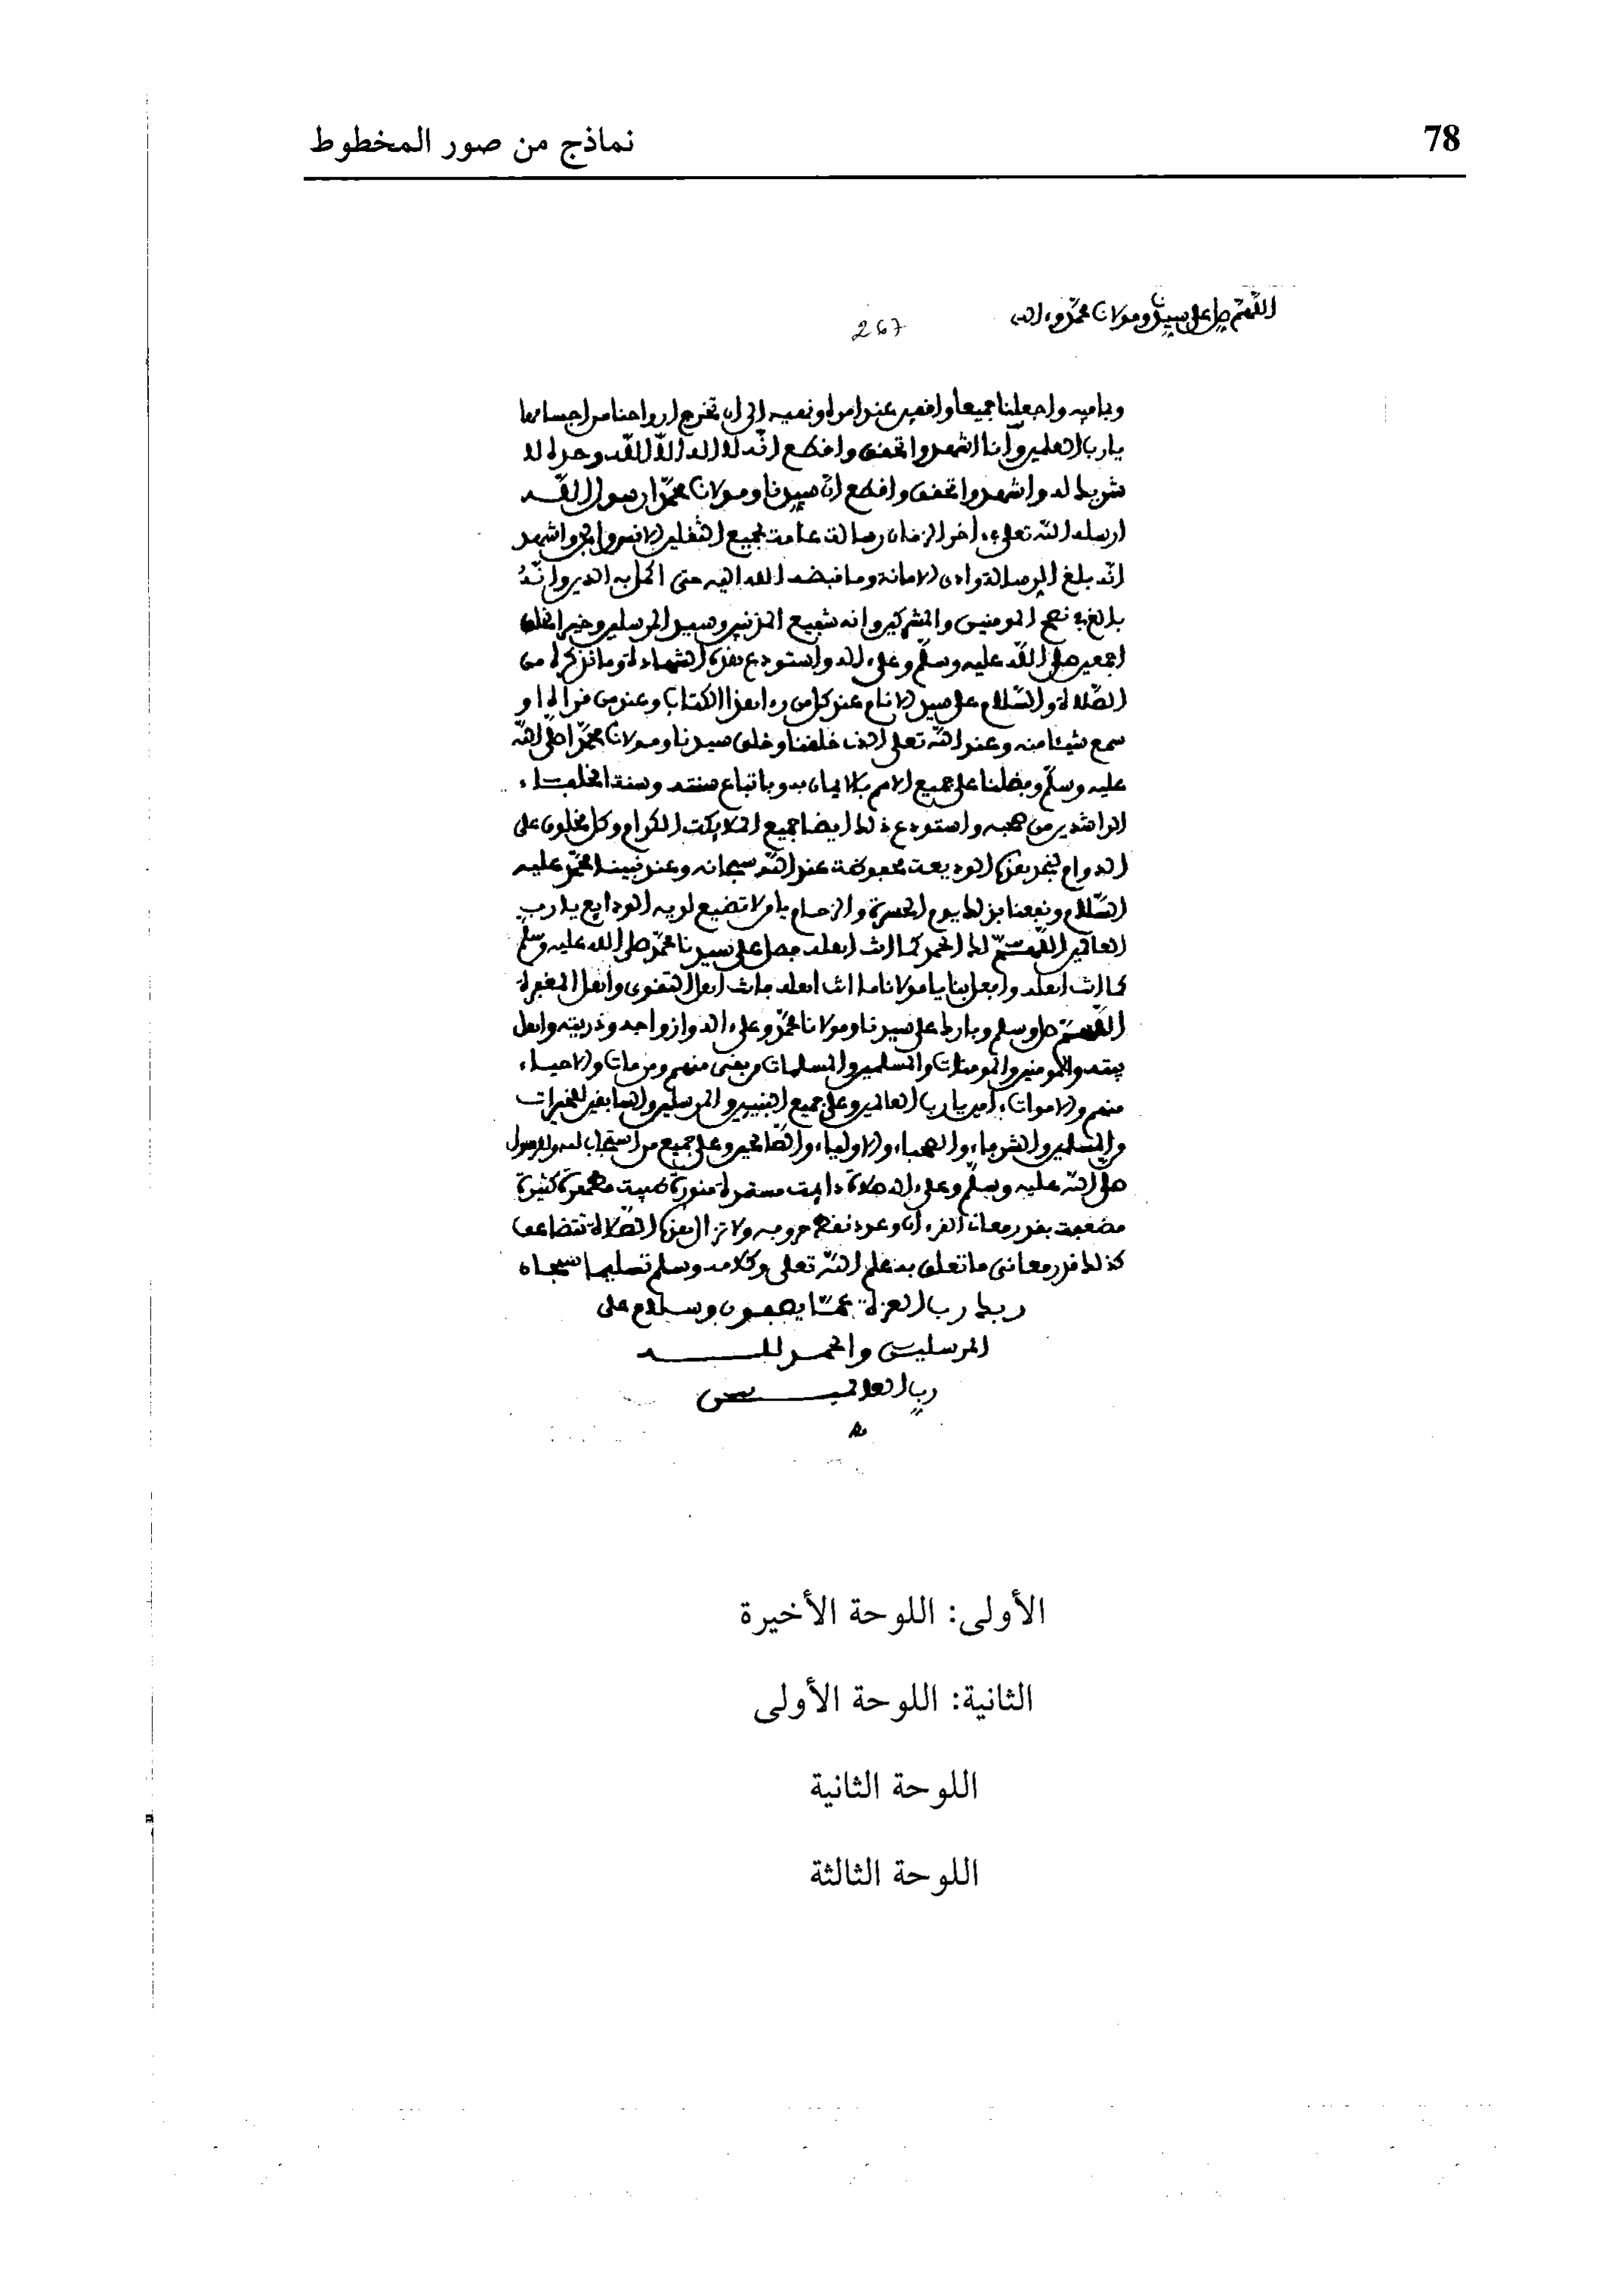 78
نماذج من صور المخطوط
اللهم صل على سيدنا ومولانا محمد وءاله
267
واجعلنا جميعا واقفين عند امره ونهيه إلى ان تخرج ارواحنا من اجسامنا
يا رب العلمين وأنا اشهد واتحقق واقطع انه لا اله الا الله وحده لا
شريك له واشهد واتحقق واقطع ان سيدنا ومولانا محمدا رسول الله
ارسله الله تعلى في ءاخر الزمان رسالة عامة لجميع الثقلين الانس والجن واشهد
انه بلغ الرسالة وادى الامانة وما قبضه الله اليه حتى اكمل به الدين وانه
بالغ في نصح المومنين والمشركين وانه شفيع المذنبين وسيد المرسلين وخير الخلق
اجمعين صلى الله عليه وسلم وعلى ءاله واستودع هذه الشهادة وما نذكره من
الصلاة والسلام على سيد الانام عند كل من روى هذا الكتاب وعند من قرأه او
سمع شيئا منه وعند الله تعلى الذي خلقنا وخلق سيدنا ومولانا محمدا صلى الله
عليه وسلم وفضلنا على جميع الامم بالايمان به وباتباع سنته وسنة الخلفاء
الراشدين من صحبه واستودع ذلك ايضا جميع الملايكة الكرام وكل مخلوق على
الدوام لتبقى هذه الوديعة محفوظة عند الله سبحانه وعند نبينا محمد عليه
السلام ونفعنا بذلك يوم الحسرة والزحام يا من لا تضيع لديه الودايع يا رب
العالمين اللهم لك الحمد كما انت اهله فصل على سيدنا محمد صلى الله عليه وسلم
كما انت اهله وافعل بنا يا مولانا ما انت اهله فانت اهل التقوى واهل المغفرة
اللهم صل وسلم وبارك على سيدنا ومولانا محمد وعلى ءاله وازواجه وذريته واهل
بيته والمومنين والمومنات والمسلمين والمسلمات من بقي منهم ومن مات والاحياء
منهم والاموات ءامين يا رب العالمين وعلى جميع النبيين والمرسلين والسابقين للخيرات
والمسلمين والشرفاء والصحباء والاولياء والصالحين وعلى جميع من استجاب لله وللرسول
صلى الله عليه وسلم وعلى ءاله صلاة دايمة مستمرة منورة طيبة مطهرة كثيرة
مضعفة بقدر معاني القرءان وعدد نقط حروفه ولا تزال هذه الصلاة تتضاعف
كذلك قدر معاني ما تعلق به علم الله تعلى وكلامه وسلم تسليما سبحان
ربك رب العزة عما يصفون وسلام على
المرسلين والحمد لله
رب العالمين
الأولى: اللوحة الأخيرة
الثانية: اللوحة الأولى
اللوحة الثانية
اللوحة الثالثة